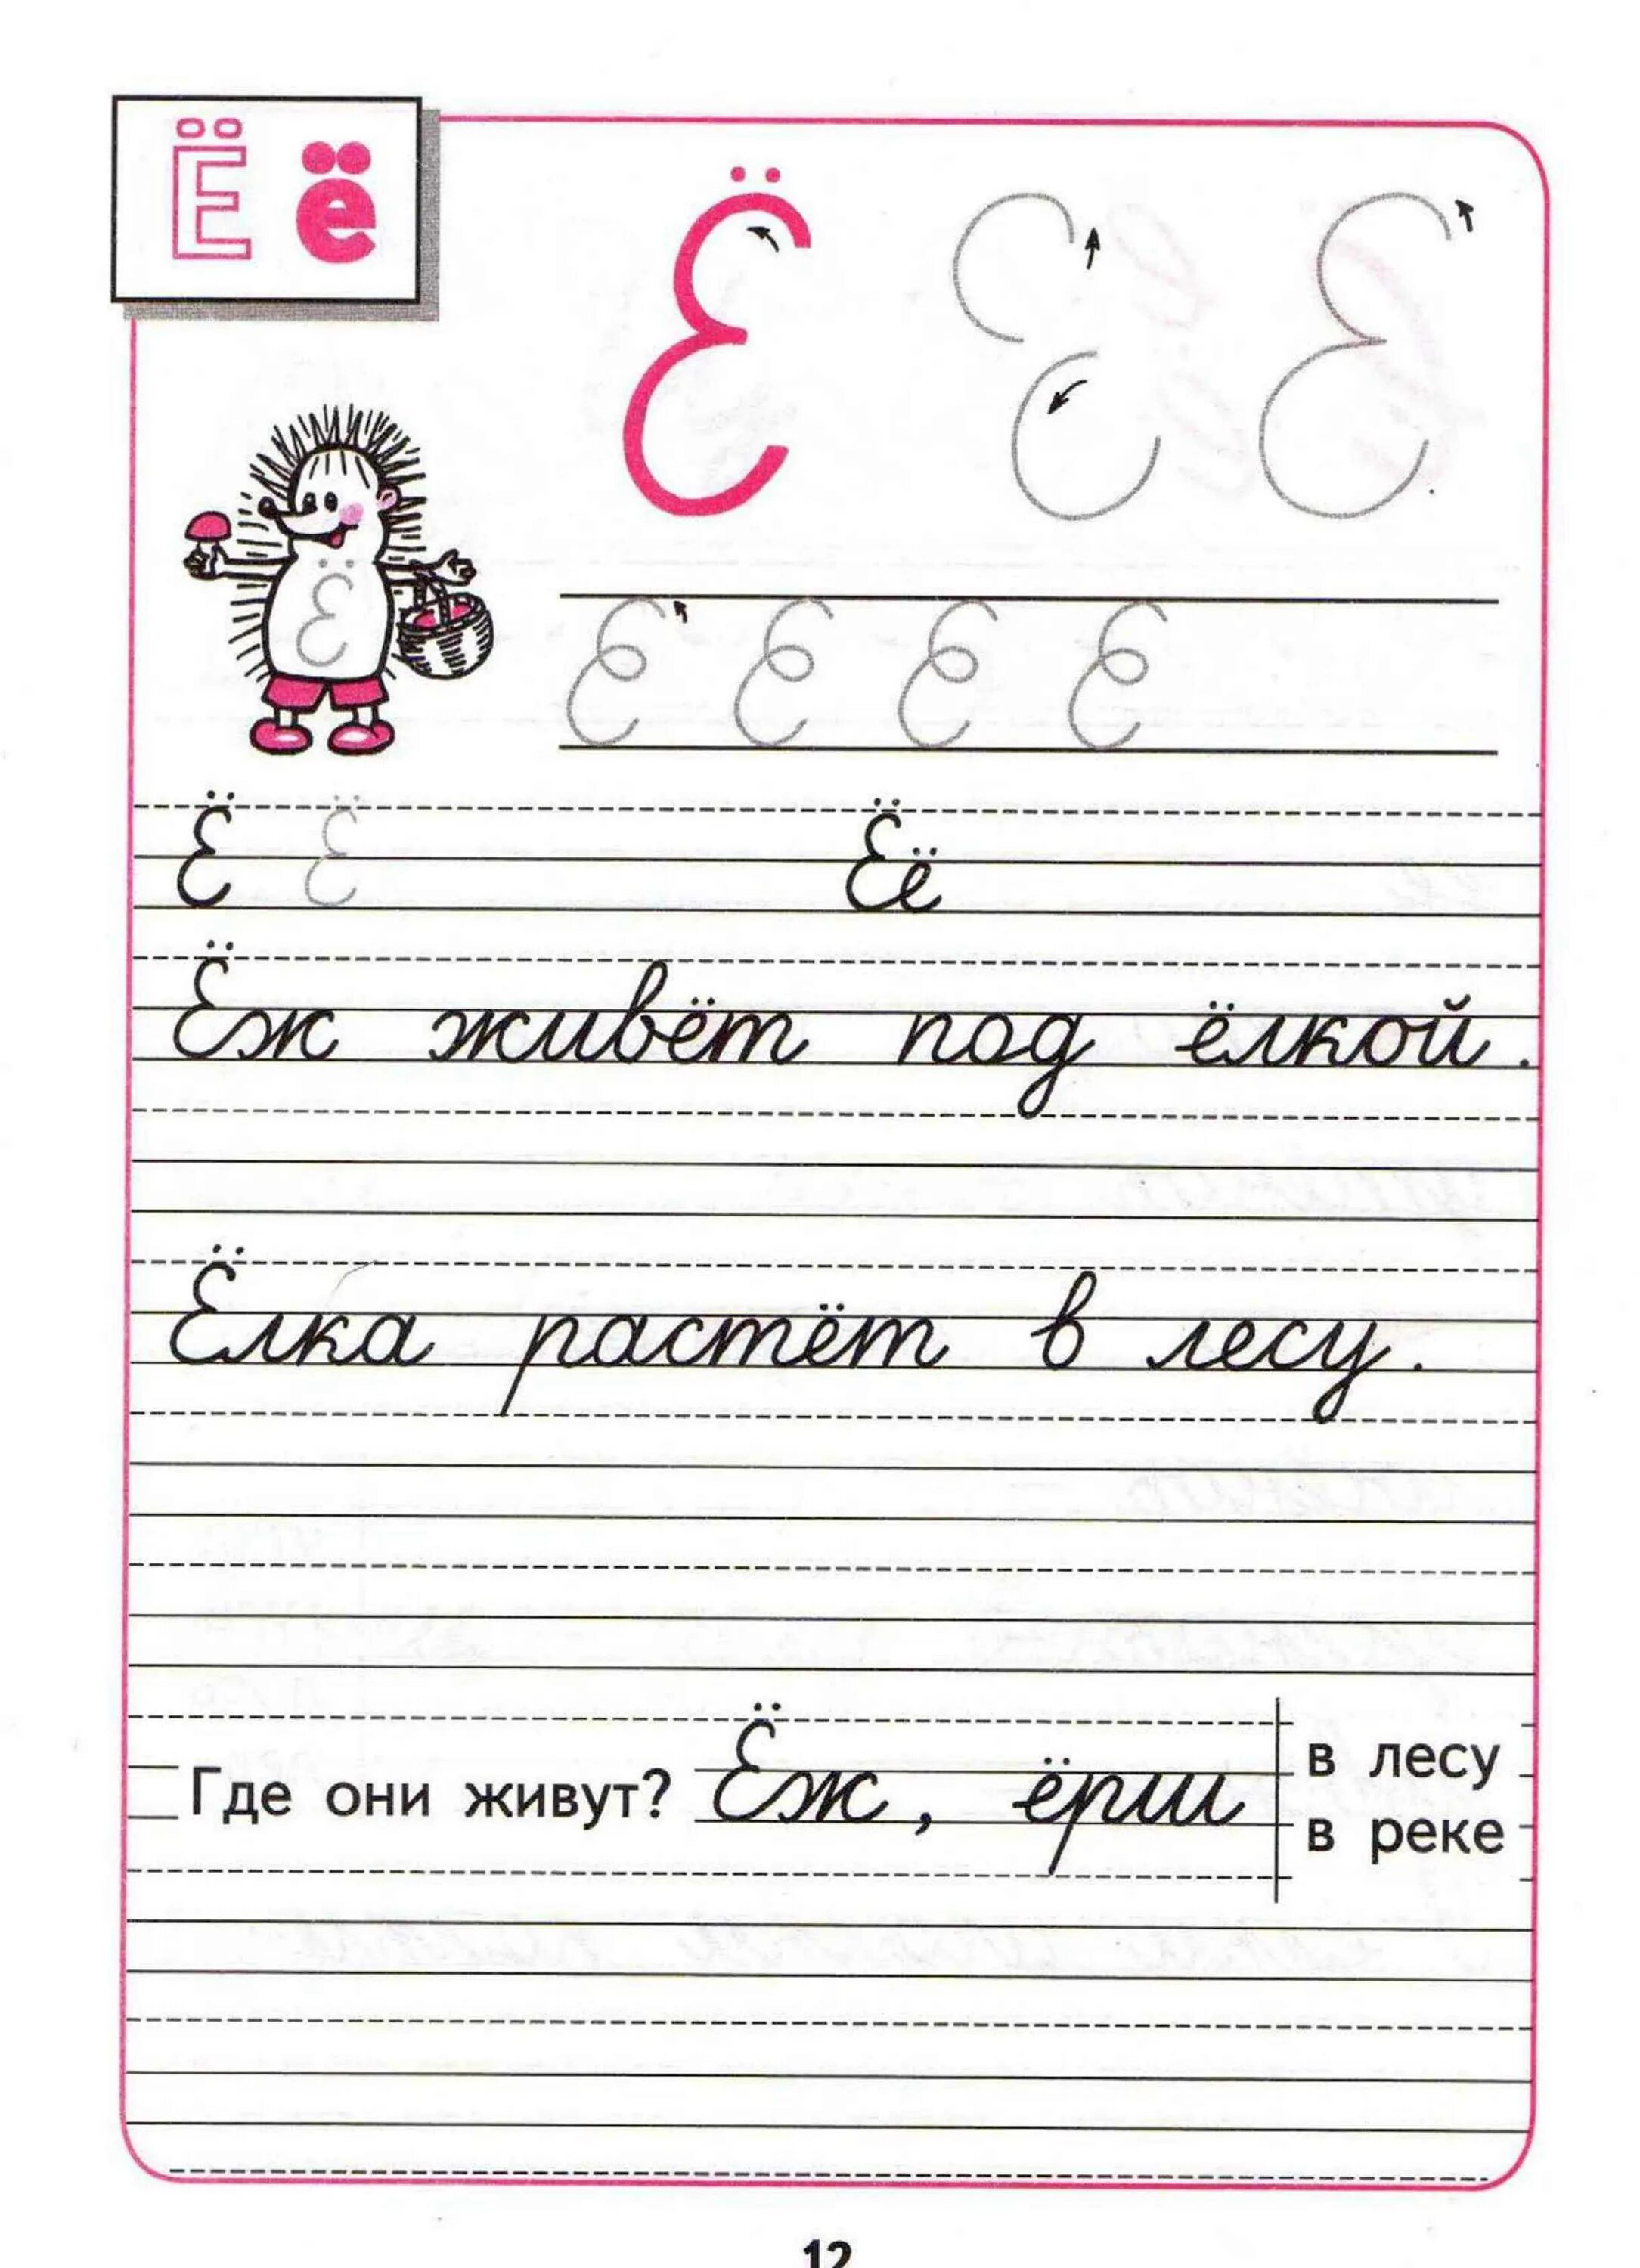 Ё ё
Ё
Ё
Ё Ё Ёё
Ёж живёт под ёлкой.
Ёлка растёт в лесу.
Где они живут? Ёж, ёрш
в лесу
в реке
12